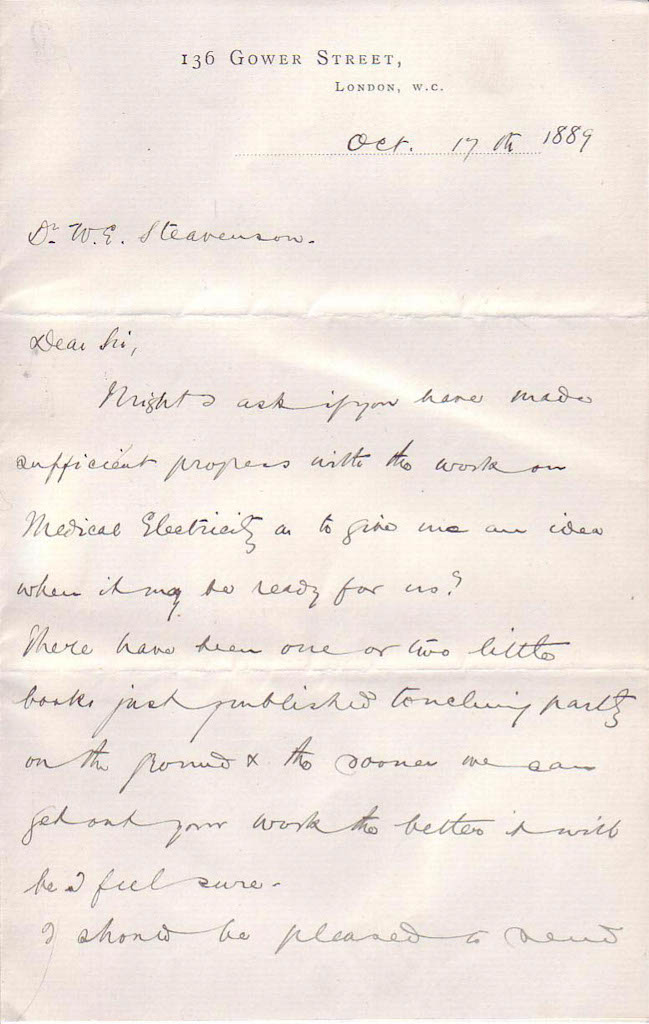 136 GOWER STREET,
LONDON, W.C.
Oct. 17th 1889
Dr. W.E. Steavenson.
Dear Sir,
Might I ask if you have made
sufficient progress with the work on
Medical Electricity as to give me an idea
when it may be ready for us?
There have been one or two little
books just published touching partly
on the ground & the sooner we can
get out your work the better it will
be I feel sure.
I should be pleased to send